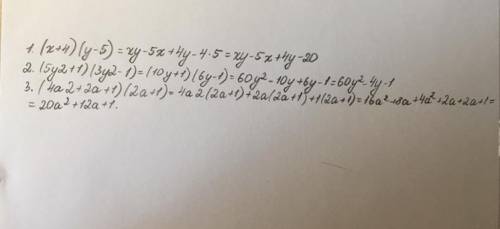 1. (x+4)(y-5)=xy-5x+4y-4·5=xy-5x+4y-20
2. (5y2+1)(3y2-1)=(10y+1)(6y-1)=60y²-10y+6y-1=60y²-4y-1
3. (4a2+2a+1)(2a+1)=4a2(2a+1)+2a(2a+1)+1(2a+1)=16a²+8a+4a²+2a+2a+1=
=20a²+12a+1.